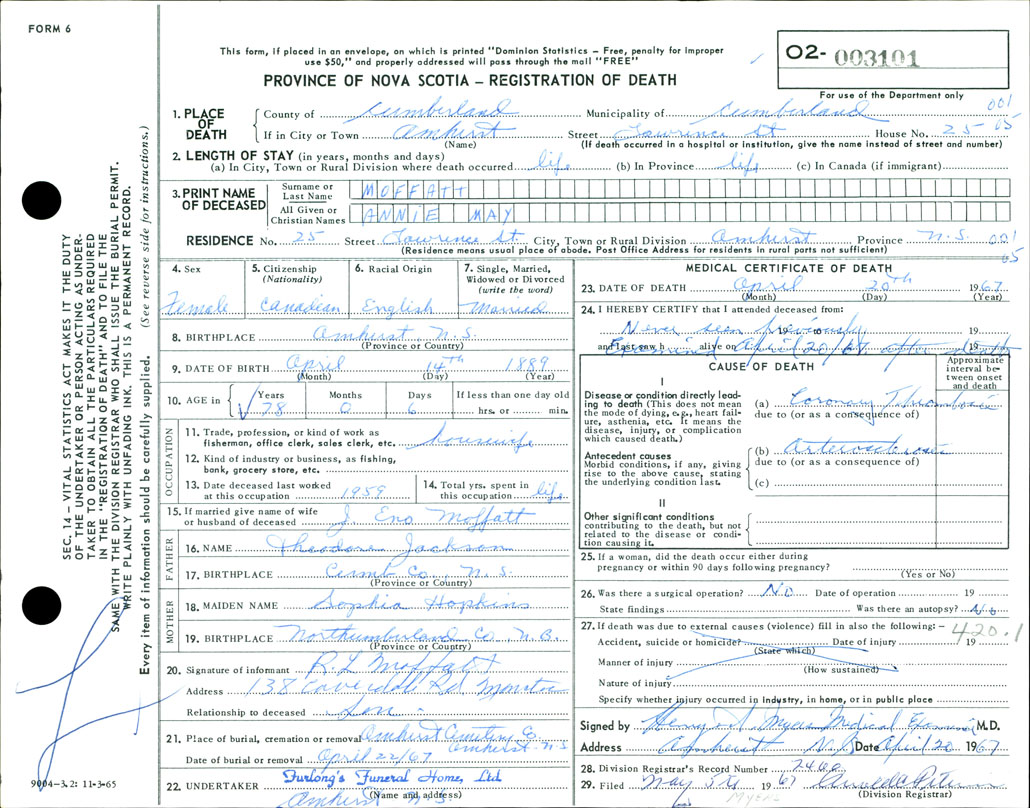 FORM 6
This form, if placed in an envelope, on which is printed "Dominion Statistics – Free, penalty for improper
use $50," and properly addressed will pass through the mail "FREE"
PROVINCE OF NOVA SCOTIA – REGISTRATION OF DEATH
O2- 003101
For use of the Department only
1. PLACE OF DEATH County of Cumberland Municipality of Cumberland 001
If in City or Town Amherst Street Lawrence St House No. 25 05
(Name) (If death occurred in a hospital or institution, give the name instead of street and number)
2. LENGTH OF STAY (in years, months and days)
(a) In City, Town or Rural Division where death occurred life (b) In Province life (c) In Canada (if immigrant)
3. PRINT NAME OF DECEASED
Surname or Last Name MOFFATT
All Given or Christian Names ANNIE MAY
RESIDENCE No. 25 Street Lawrence St. City, Town or Rural Division Amherst Province N.S. 001
(Residence means usual place of abode. Post Office Address for residents in rural parts not sufficient) 05
4. Sex
Female
5. Citizenship
(Nationality)
Canadian
6. Racial Origin
English
7. Single, Married,
Widowed or Divorced
(write the word)
Married
8. BIRTHPLACE Amherst N.S.
(Province or Country)
9. DATE OF BIRTH April 14th 1889
(Month) (Day) (Year)
10. AGE in Years Months Days If less than one day old
78 0 6 hrs. or min.
OCCUPATION
11. Trade, profession, or kind of work as
fisherman, office clerk, sales clerk, etc. housewife
12. Kind of industry or business, as fishing,
bank, grocery store, etc.
13. Date deceased last worked
at this occupation 1959
14. Total yrs. spent in
this occupation life
15. If married give name of wife
or husband of deceased J. Eno Moffatt
FATHER
16. NAME Theodore Jackson
17. BIRTHPLACE Cumb Co., N.S.
(Province or Country)
MOTHER
18. MAIDEN NAME Sophia Hopkins
19. BIRTHPLACE Northumberland Co., N.B.
(Province or Country)
20. Signature of informant R. L. Moffatt
Address 138 Rd
Relationship to deceased Son
21. Place of burial, cremation or removal Amherst Cemetery
Amherst N.S
Date of burial or removal April 22/67
22. UNDERTAKER Furlong's Funeral Home, Ltd
(Name and address)
Amherst N S
MEDICAL CERTIFICATE OF DEATH
23. DATE OF DEATH April 20th 1967
(Month) (Day) (Year)
24. I HEREBY CERTIFY that I attended deceased from:
Never seen previously 19
and last saw h alive on 19
Examined April 20/67 after death
CAUSE OF DEATH
Approximate
interval be-
tween onset
and death
I
Disease or condition directly lead-
ing to death (This does not mean
the mode of dying, e.g., heart fail-
ure, asthenia, etc. It means the
disease, injury, or complication
which caused death.)
(a) Coronary Thrombosis
due to (or as a consequence of)
Antecedent causes
Morbid conditions, if any, giving
rise to the above cause, stating
the underlying condition last.
(b) Arteriosclerosis
due to (or as a consequence of)
(c)
II
Other significant conditions
contributing to the death, but not
related to the disease or condi-
tion causing it.
25. If a woman, did the death occur either during
pregnancy or within 90 days following pregnancy?
(Yes or No)
26. Was there a surgical operation? No Date of operation 19
State findings Was there an autopsy? No
27. If death was due to external causes (violence) fill in also the following: – 420.1
Accident, suicide or homicide? Date of injury 19
(State which)
Manner of injury
(How sustained)
Nature of injury
Specify whether injury occurred in industry, in home, or in public place
Signed by Henry Myers Medical Examiner M.D.
Address Amherst N.S Date April 20 1967
28. Division Registrar's Record Number
29. Filed May 5th 1967
(Division Registrar)
SEC. 14 – VITAL STATISTICS ACT MAKES IT THE DUTY
OF THE UNDERTAKER OR PERSON ACTING AS UNDER-
TAKER TO OBTAIN ALL THE PARTICULARS REQUIRED
IN THE "REGISTRATION OF DEATH" AND TO FILE THE
SAME WITH THE DIVISION REGISTRAR WHO SHALL ISSUE THE BURIAL PERMIT.
WRITE PLAINLY WITH UNFADING INK. THIS IS A PERMANENT RECORD.
Every item of information should be carefully supplied. (See reverse side for instructions.)
9004–3.2: 11-3-65